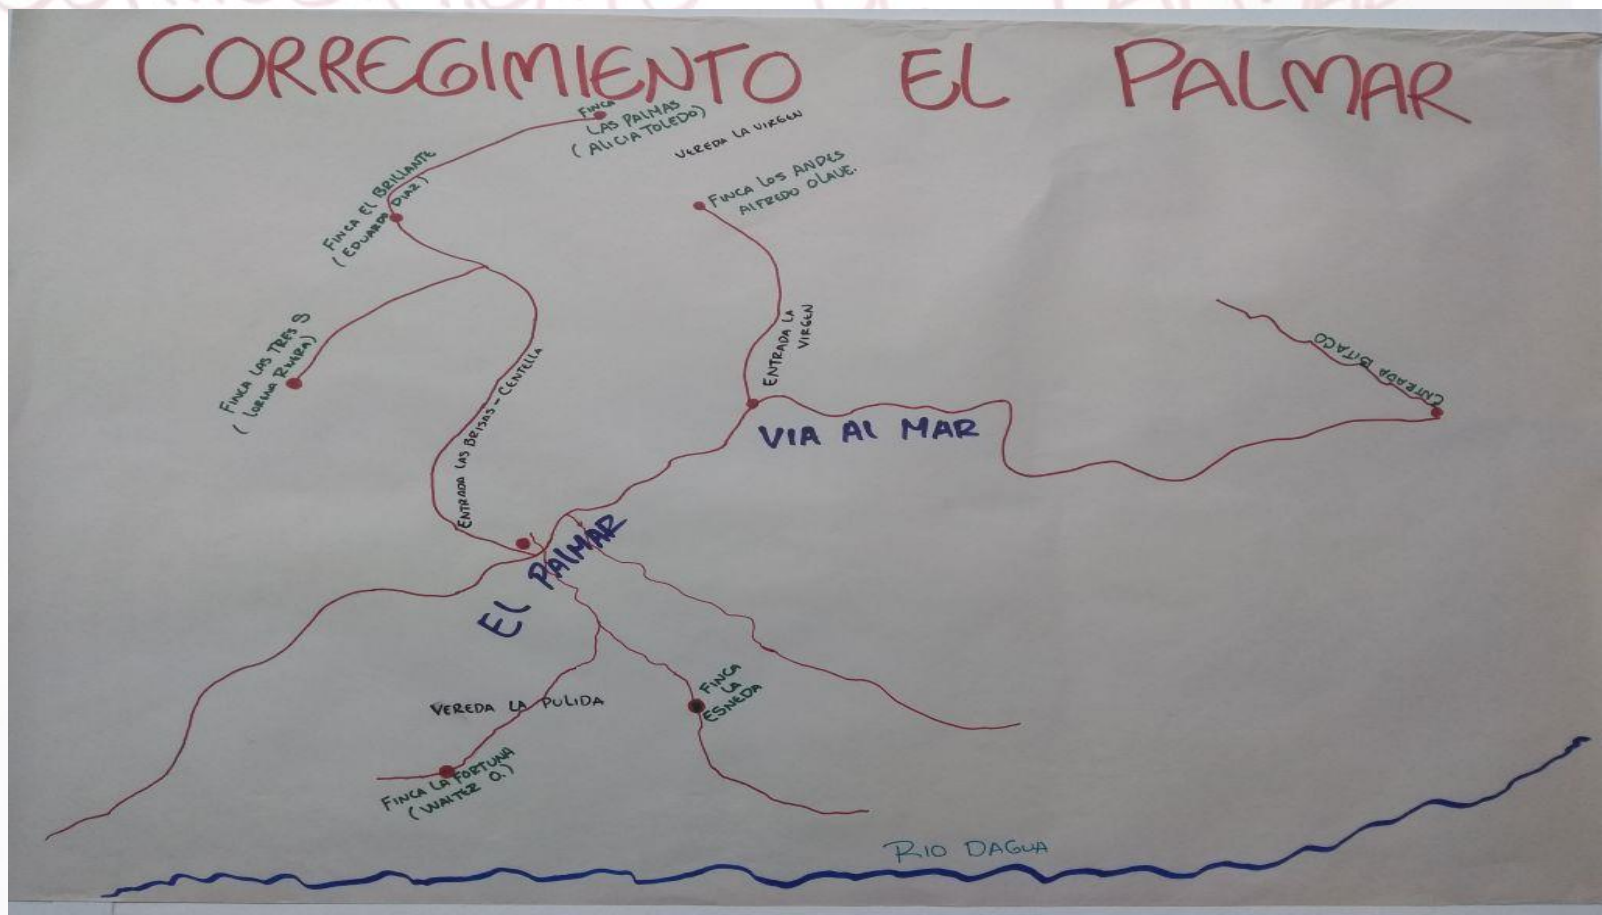 CORREGIMIENTO EL PALMAR
FINCA
LAS PALMAS
(ALICIA TOLEDO)
VEREDA LA VIRGEN
FINCA EL BRILLANTE
(EDUARDO DIAZ)
FINCA LOS ANDES
ALFREDO OLAVE.
FINCA LAS TRES S
(LORENA RIVERA)
ENTRADA LAS BRISAS - CENTELLA
ENTRADA LA
VIRGEN
ENTRADA BITACO
VIA Al MAR
EL PAlMAR
VEREDA LA PULIDA
FINCA
LA
ESNEDA
FINCA LA FORTUNA
(WALTER O.)
RIO DAGUA